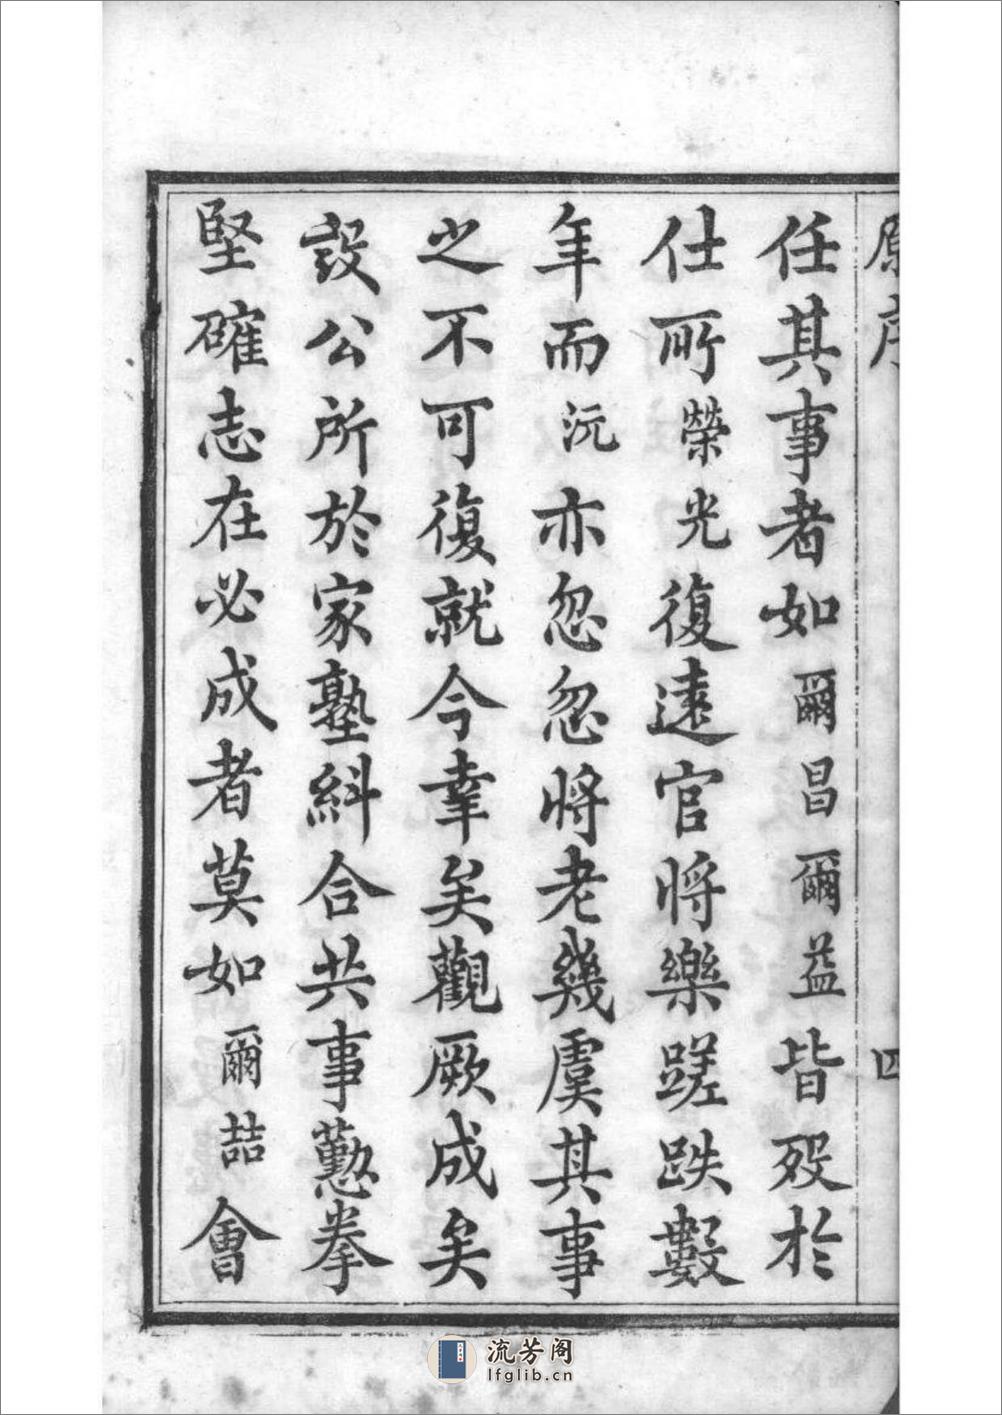 原序 四
任其事者如爾昌爾益皆歿於
仕所榮光復遠官將樂蹉跌數
年而沅亦忽忽將老幾虞其事
之不可復就今幸矣觀厥成矣
設公所於家塾糾合共事懃拳
堅確志在必成者莫如爾喆會
流芳阁
lfglib.cn